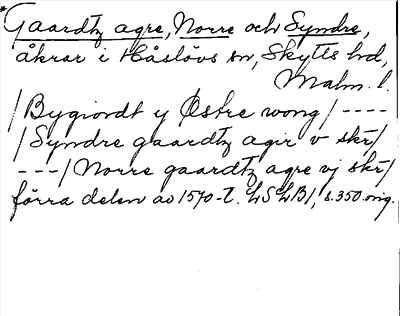 *Gaardtz agre, Norre och Syndre,
åkrar i Håslövs sn, Skytts hd,
Malm. l.
/Bygiordt y Østre wong/ ----
/Syndre gaardtz agir v skr/
---/Norre gaardtz agre vj skr/
förra delen av 1570-t. LSLB1, s.350.orig.